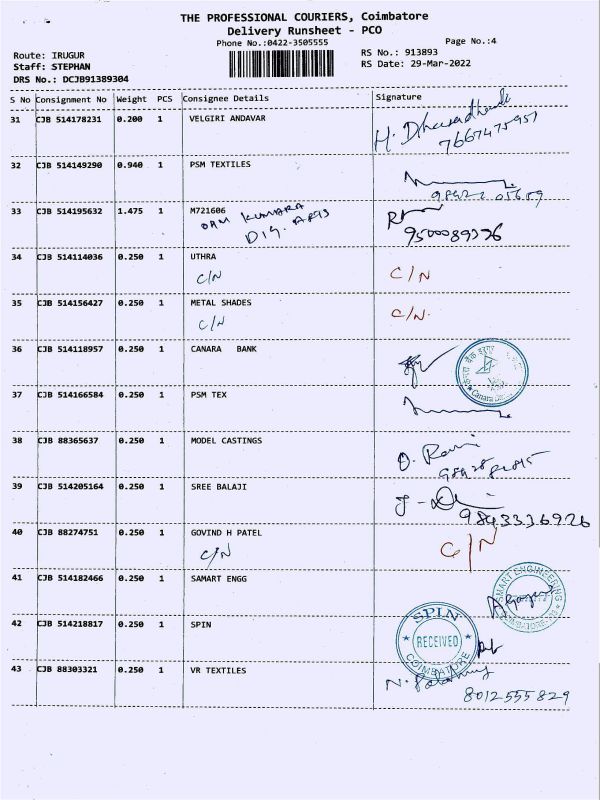 THE PROFESSIONAL COURIERS, Coimbatore
Delivery Runsheet - PCO
Phone No.:0422-3505555
Page No.:4
Route: IRUGUR
RS No.: 913893
Staff: STEPHAN
RS Date: 29-Mar-2022
DRS No.: DCJB91389304
S No Consignment No Weight PCS Consignee Details Signature
31 CJB 514178231 0.200 1 VELGIRI ANDAVAR
7667475957
32 CJB 514149290 0.940 1 PSM TEXTILES
33 CJB 514195632 1.475 1 M721606
KUMARA
9500089336
34 CJB 514114036 0.250 1 UTHRA
C/N C/N
35 CJB 514156427 0.250 1 METAL SHADES
C/N C/N
36 CJB 514118957 0.250 1 CANARA BANK
37 CJB 514166584 0.250 1 PSM TEX
38 CJB 88365637 0.250 1 MODEL CASTINGS
39 CJB 514205164 0.250 1 SREE BALAJI
9843336926
40 CJB 88274751 0.250 1 GOVIND H PATEL
C/N C/N
41 CJB 514182466 0.250 1 SAMART ENGG
SMART ENGINEERING
42 CJB 514218817 0.250 1 SPIN
SPIN
RECEIVED
COIMBATORE
43 CJB 88303321 0.250 1 VR TEXTILES
8012555829